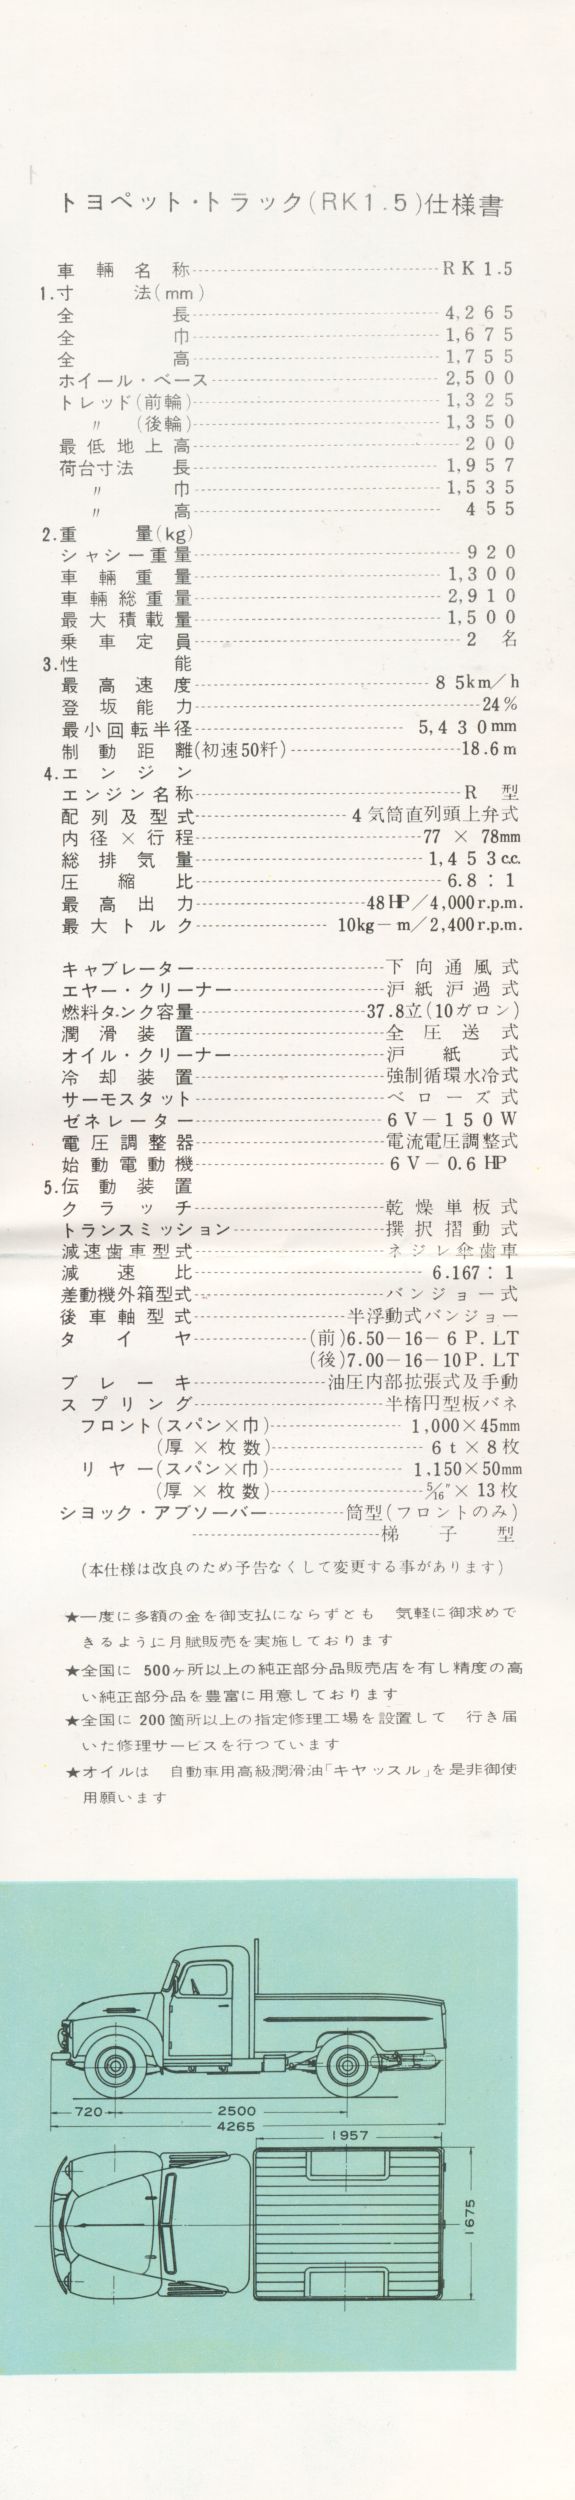 トヨペット・トラック(RK1.5)仕様書
車輛名称 RK1.5
1.寸法(mm)
全長 4,265
全巾 1,675
全高 1,755
ホイール・ベース 2,500
トレッド(前輪) 1,325
〃 (後輪) 1,350
最低地上高 200
荷台寸法 長 1,957
〃 巾 1,535
〃 高 455
2.重量(kg)
シャシー重量 920
車輛重量 1,300
車輛総重量 2,910
最大積載量 1,500
乗車定員 2名
3.性能
最高速度 85km/h
登坂能力 24%
最小回転半径 5,430mm
制動距離(初速50粁) 18.6m
4.エンジン
エンジン名称 R型
配列及型式 4気筒直列頭上弁式
内径×行程 77×78mm
総排気量 1,453c.c.
圧縮比 6.8:1
最高出力 48HP/4,000r.p.m.
最大トルク 10kg-m/2,400r.p.m.
キャブレーター 下向通風式
エヤー・クリーナー 沪紙沪過式
燃料タンク容量 37.8立(10ガロン)
潤滑装置 全圧送式
オイル・クリーナー 沪紙式
冷却装置 強制循環水冷式
サーモスタット ベローズ式
ゼネレーター 6V-150W
電圧調整器 電流電圧調整式
始動電動機 6V-0.6HP
5.伝動装置
クラッチ 乾燥単板式
トランスミッション 撰択摺動式
減速歯車型式 ネジレ傘歯車
減速比 6.167:1
差動機外箱型式 バンジョー式
後車軸型式 半浮動式バンジョー
タイヤ (前)6.50-16-6P.LT
(後)7.00-16-10P.LT
ブレーキ 油圧内部拡張式及手動
スプリング 半楕円型板バネ
フロント(スパン×巾) 1,000×45mm
(厚×枚数) 6t×8枚
リヤー(スパン×巾) 1,150×50mm
(厚×枚数) 5/16"×13枚
シヨック・アブソーバー 筒型(フロントのみ)
梯子型
(本仕様は改良のため予告なくして変更する事があります)
★一度に多額の金を御支払にならずとも 気軽に御求めで
きるように月賦販売を実施しております
★全国に 500ヶ所以上の純正部分品販売店を有し精度の高
い純正部分品を豊富に用意しております
★全国に 200箇所以上の指定修理工場を設置して 行き届
いた修理サービスを行つています
★オイルは 自動車用高級潤滑油「キヤッスル」を是非御使
用願います
720
2500
4265
1957
1675